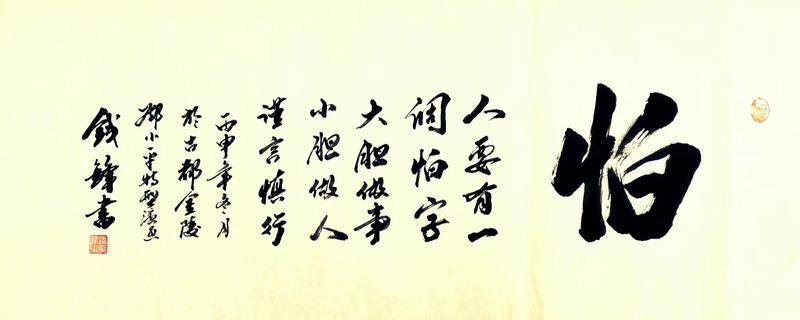 怕
人要有一
個怕字
大胆做事
小胆做人
謹言慎行
丙申年冬月
於古都金陵
鄧小平特型演员
錢鋒書